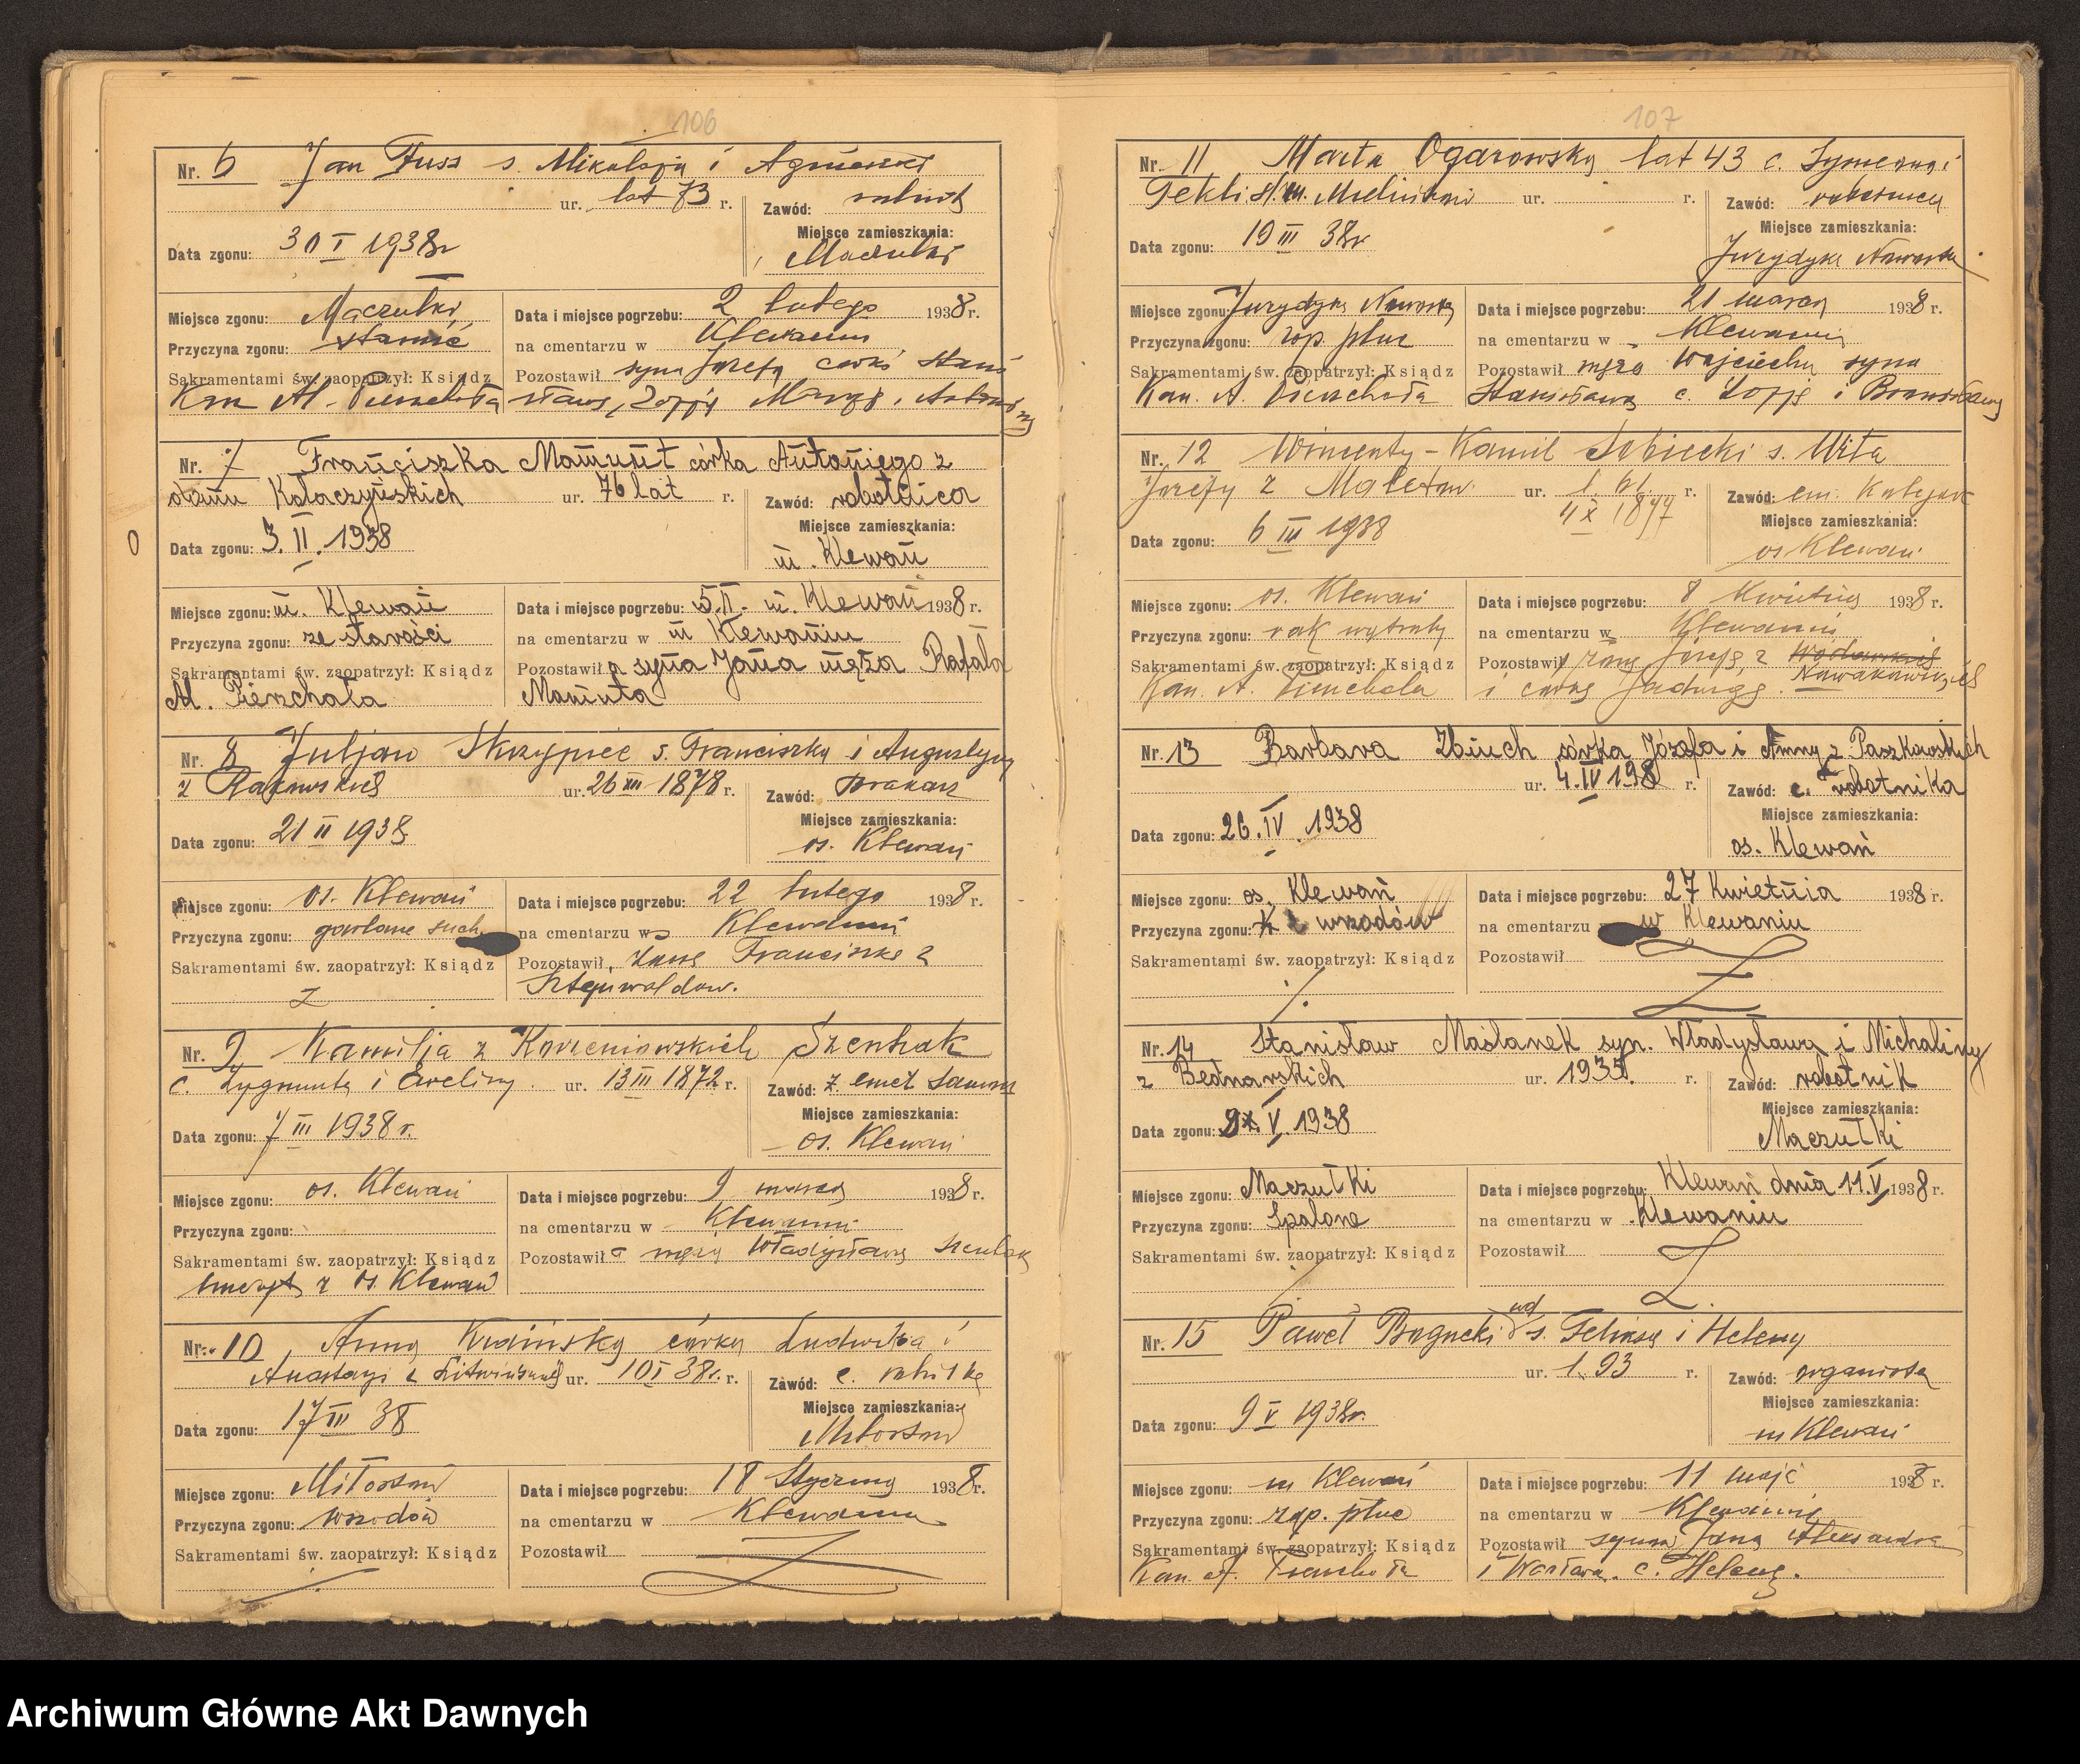 106
Nr. 6 Jan Fuss s. Mikołaja i Agnieszki
ur. lat 73 r. Zawód: rolnik
Miejsce zamieszkania:
Data zgonu: 30 I 1938 r
Miejsce zgonu: Maczułki Data i miejsce pogrzebu: 2 lutego 1938 r.
Przyczyna zgonu: starość na cmentarzu w Klewaniu
Sakramentami św. zaopatrzył: Ksiądz Pozostawił syna Józefa córki Stani
Kan A. Pierzchała sławę, Zofję Marję i Antoninę
Nr. 7 Franciszka Mamut córka Antoniego z
domu Kołaczyńskich ur. 76 lat r. Zawód: robotnica
Miejsce zamieszkania:
Data zgonu: 3. II. 1938 m. Klewań
Miejsce zgonu: m. Klewań Data i miejsce pogrzebu: 5.II. m. Klewań 1938 r.
Przyczyna zgonu: ze starości na cmentarzu w m Klewaniu
Sakramentami św. zaopatrzył: Ksiądz Pozostawiła syna Jana męża Rafała
A. Pierzchała Mamuta
Nr. 8 Juljan Skrzypiec s. Franciszka i Augustyny
z Rakowskich ur. 26 XII 1878 r. Zawód:
Miejsce zamieszkania:
Data zgonu: 21 II 1938 os. Klewań
Miejsce zgonu: os. Klewań Data i miejsce pogrzebu: 22 lutego 1938 r.
Przyczyna zgonu: gardlane such. na cmentarzu w Klewaniu
Sakramentami św. zaopatrzył: Ksiądz Pozostawił żonę Franciszkę z
Nr. 9 Kamilja z Korzeniowskich Szenhak
c. Zygmunta i Eweliny ur. 13 III 1872 r. Zawód: ż. emer.
Miejsce zamieszkania:
Data zgonu: 7 III 1938 r. os. Klewań
Miejsce zgonu: os. Klewań Data i miejsce pogrzebu: 9 marca 1938 r.
Przyczyna zgonu: na cmentarzu w Klewaniu
Sakramentami św. zaopatrzył: Ksiądz Pozostawiła męża Władysława Szenhak
z os. Klewań
Nr. 10 Anna córka Ludwika i
Anastazji z ur. 10 I 38 r. r. Zawód: c.
Miejsce zamieszkania:
Data zgonu: 17 III 38
Miejsce zgonu: Data i miejsce pogrzebu: 18 Stycznia 1938 r.
Przyczyna zgonu: wrzodów na cmentarzu w Klewaniu
Sakramentami św. zaopatrzył: Ksiądz Pozostawił
107
Nr. 11 Marta Ogarowska lat 43 c. Symeona i
Tekli ur. r. Zawód: robotnica
Miejsce zamieszkania:
Data zgonu: 19 III 38 r Jurydyka Nowostaw
Miejsce zgonu: Jurydyka Nowostaw Data i miejsce pogrzebu: 21 marca 1938 r.
Przyczyna zgonu: zap. płuc na cmentarzu w Klewaniu
Sakramentami św. zaopatrzył: Ksiądz Pozostawił męża Wojciecha syna
Kan. A. Pierzchała Stanisława c. Zofję i Bronisławę
Nr. 12 Wincenty-Kamil Sobiecki s. Wita
Józefy z ur. l. 61 r. Zawód: em. Kolejarz
4 X 1877 Miejsce zamieszkania:
Data zgonu: 6 III 1938 os Klewań
Miejsce zgonu: os. Klewań Data i miejsce pogrzebu: 8 Kwietnia 1938 r.
Przyczyna zgonu: rak wątroby na cmentarzu w Klewaniu
Sakramentami św. zaopatrzył: Ksiądz Pozostawił żonę Józefę z
Kan. A. Pierzchała i córkę Jadwigę. Nowakowskich
Nr. 13 Barbara Zbiuch córka Józefa i Anny z Paszkowskich
ur. 4. IV 1938 r. Zawód: c. robotnika
Miejsce zamieszkania:
Data zgonu: 26. IV. 1938 os. Klewań
Miejsce zgonu: os. Klewań Data i miejsce pogrzebu: 27 Kwietnia 1938 r.
Przyczyna zgonu: z wrzodów na cmentarzu w Klewaniu
Sakramentami św. zaopatrzył: Ksiądz Pozostawił
Nr. 14 Stanisław Maślanek syn. Władysława i Michaliny
z Bednarskich ur. 1935. r. Zawód: robotnik
Miejsce zamieszkania:
Data zgonu: 9. V. 1938 Maczułki
Miejsce zgonu: Maczułki Data i miejsce pogrzebu: Klewań dnia 11. V 1938 r.
Przyczyna zgonu: Spalone na cmentarzu w Klewaniu
Sakramentami św. zaopatrzył: Ksiądz Pozostawił
wd
Nr. 15 Paweł Bogucki s. Feliksa i Heleny
ur. 1. 93 r. Zawód: organista
Miejsce zamieszkania:
Data zgonu: 9 V 1938 r. m Klewań
Miejsce zgonu: m Klewań Data i miejsce pogrzebu: 11 maja 1938 r.
Przyczyna zgonu: zap. płuc na cmentarzu w Klewaniu
Sakramentami św. zaopatrzył: Ksiądz Pozostawił synów Jana Aleksandra
Kan. A. Pierzchała i Wacława. c. Helenę.
Archiwum Główne Akt Dawnych